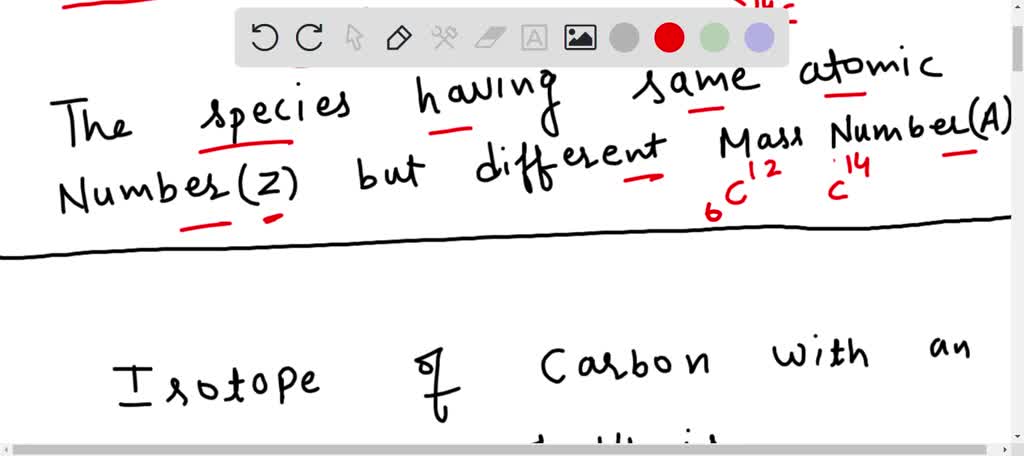 The species having same atomic
Number(Z) but different Mass Number(A)
6C12 C14
Isotope of Carbon with an